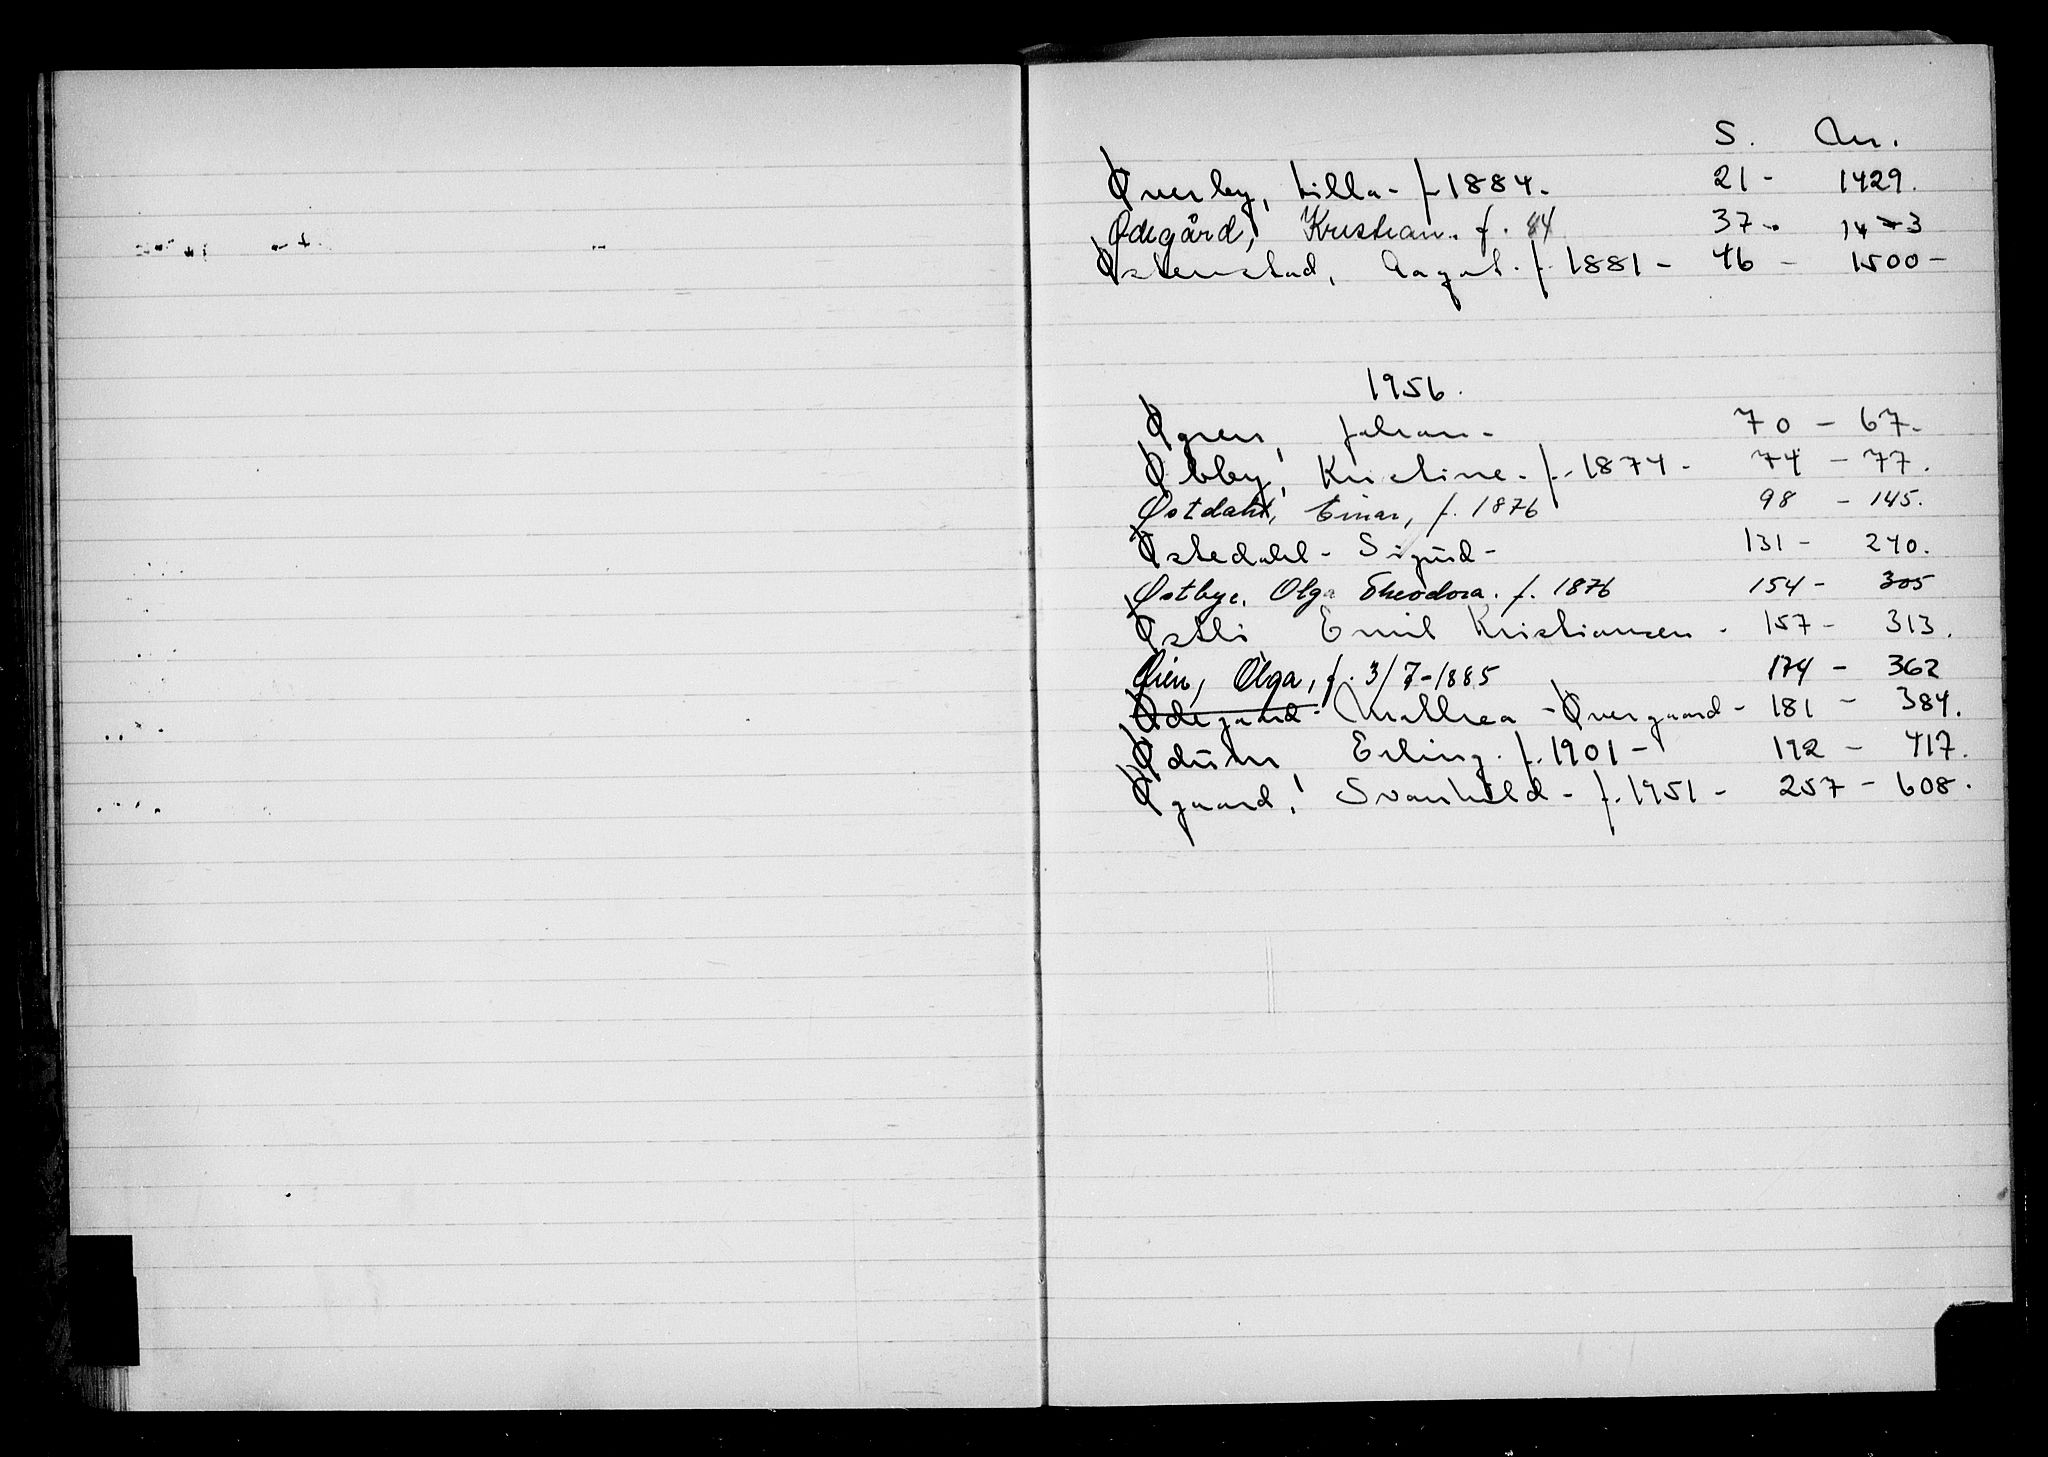 S. Nr.
Øverby, Lilla - f. 1884. 21 - 1429.
Ødegård, Kristian. f. 84 37 - 1473
Østenstad, August. f. 1881 - 46 - 1500 -
1956.
Øgren, Johan - 70 - 67.
Øbby, Kristine. f. 1874 - 74 - 77.
Østdahl, Einar, f. 1876 98 - 145.
Østedahl - Sigurd - 131 - 240.
Østbye, Olga Theodora. f. 1876 154 - 305
Østli Emil Kristiansen - 157 - 313.
Øien, Olga, f. 3/7-1885 174 - 362
Ødegaard - Mathea - Øvergaard - 181 - 384.
Ødum Erling. f. 1901 - 192 - 417.
Øgaard, Svanhild - f. 1951 - 257 - 608.